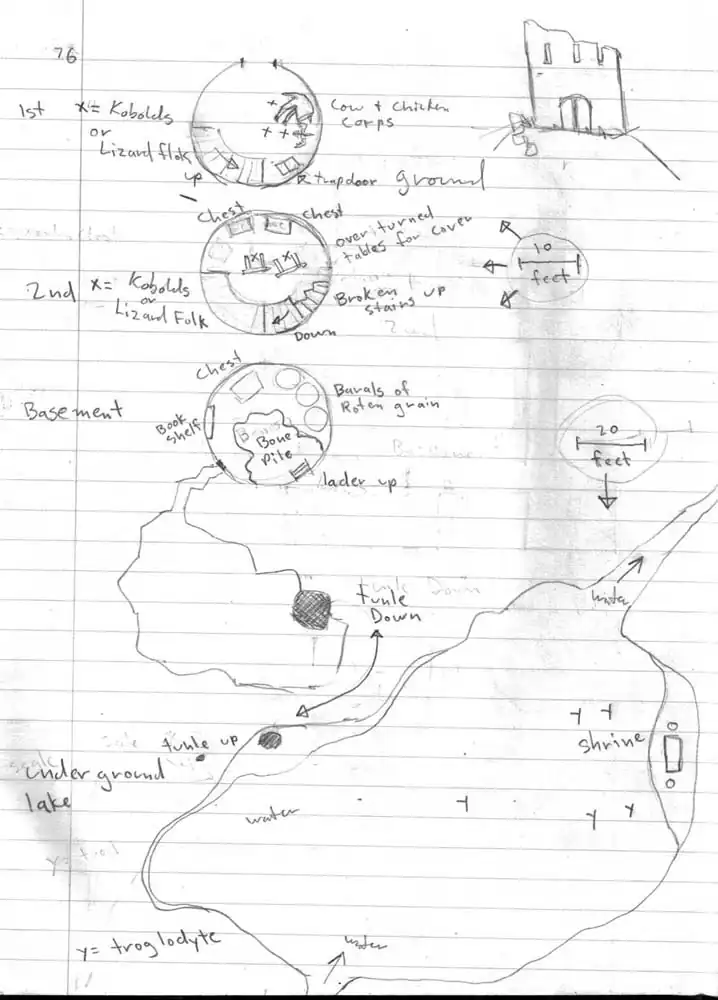 76
1st
x = Kobolds
or
Lizard flok
up
Cow + Chicken
Corps
trapdoor
ground
Chest
chest
over turned
tables for cover
2nd
x = Kobolds
or
Lizard Folk
x x
Broken
stairs up
Down
10
feet
Basement
Chest
Book
shelf
Barals of
Roten grain
Bone
pile
lader up
20
feet
Tunle
Down
water
tunle up
under ground
lake
Y Y
shrine
water
Y
Y Y
y = troglodyte
water